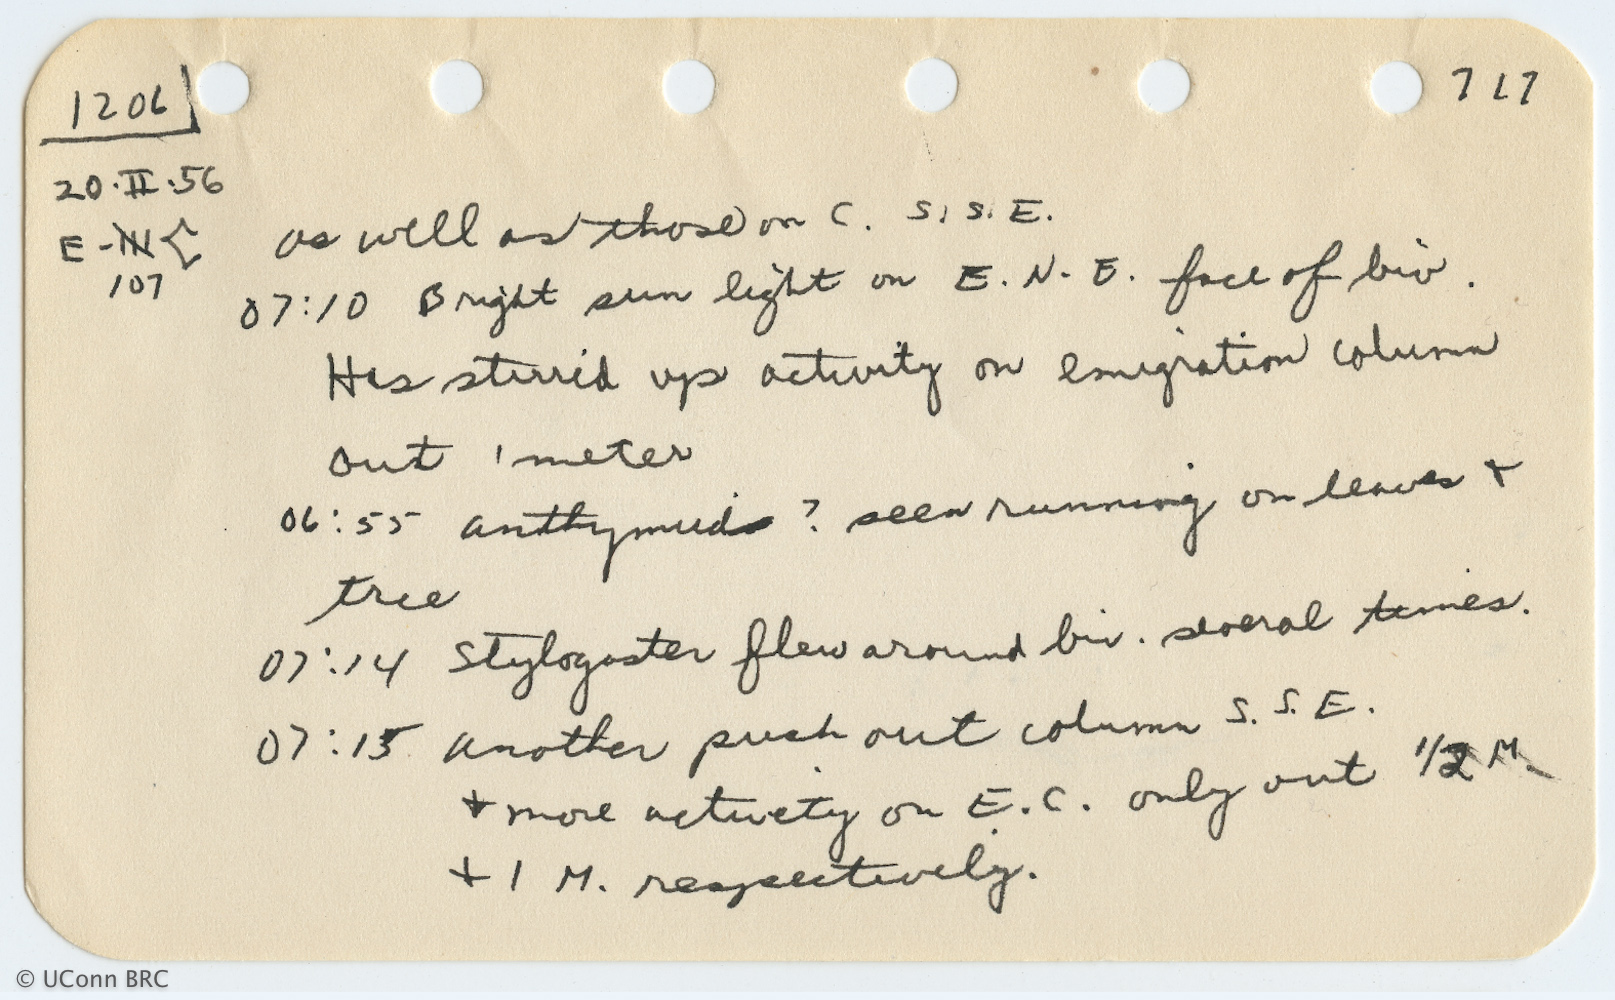 1206
717
20·II·56
E-
107
as well as those on C. S. S. E.
07:10 Bright sun light on E. N. E. face of biv.
Has stirrid up activity on emigration column
out 1 meter
06:55 anthymids ? seen running on leaves +
tree
07:14 Stylogaster flew around biv. several times.
07:15 another push out column S. S. E.
+ more activity on E. C. only out 1/2 M.
+ 1 M. respectively.
© UConn BRC